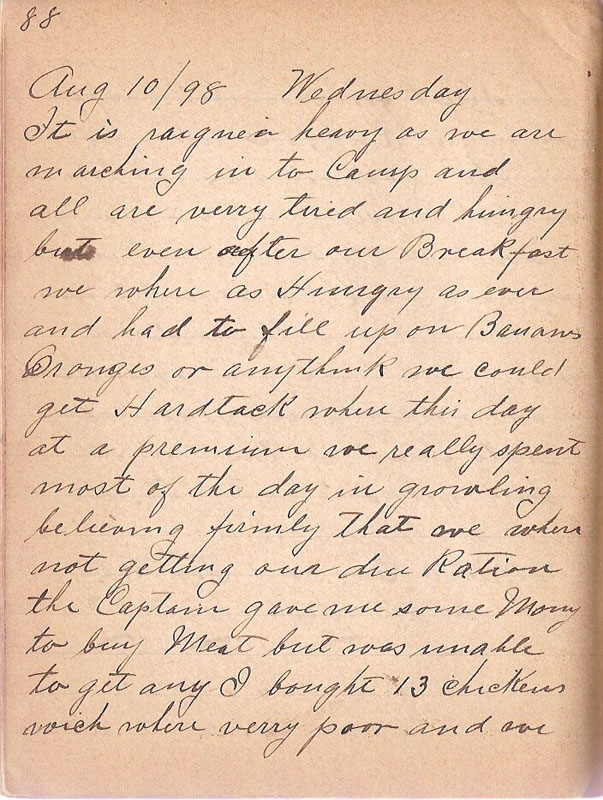 88
Aug 10/98 Wednesday
It is raignein heavy as we are
marching in to Camp and
all are verry tired and hungry
but even after our Breakfast
we where as Hungry as ever
and had to fill up on Banans
Oranges or anythink we could
get Hardtack where this day
at a premium we really spent
most of the day in growling
believing firmly that we where
not getting our due Ration
the Captain gave me some Mony
to buy Meat but was unable
to get any I bought 13 chickens
wich where verry poor and we